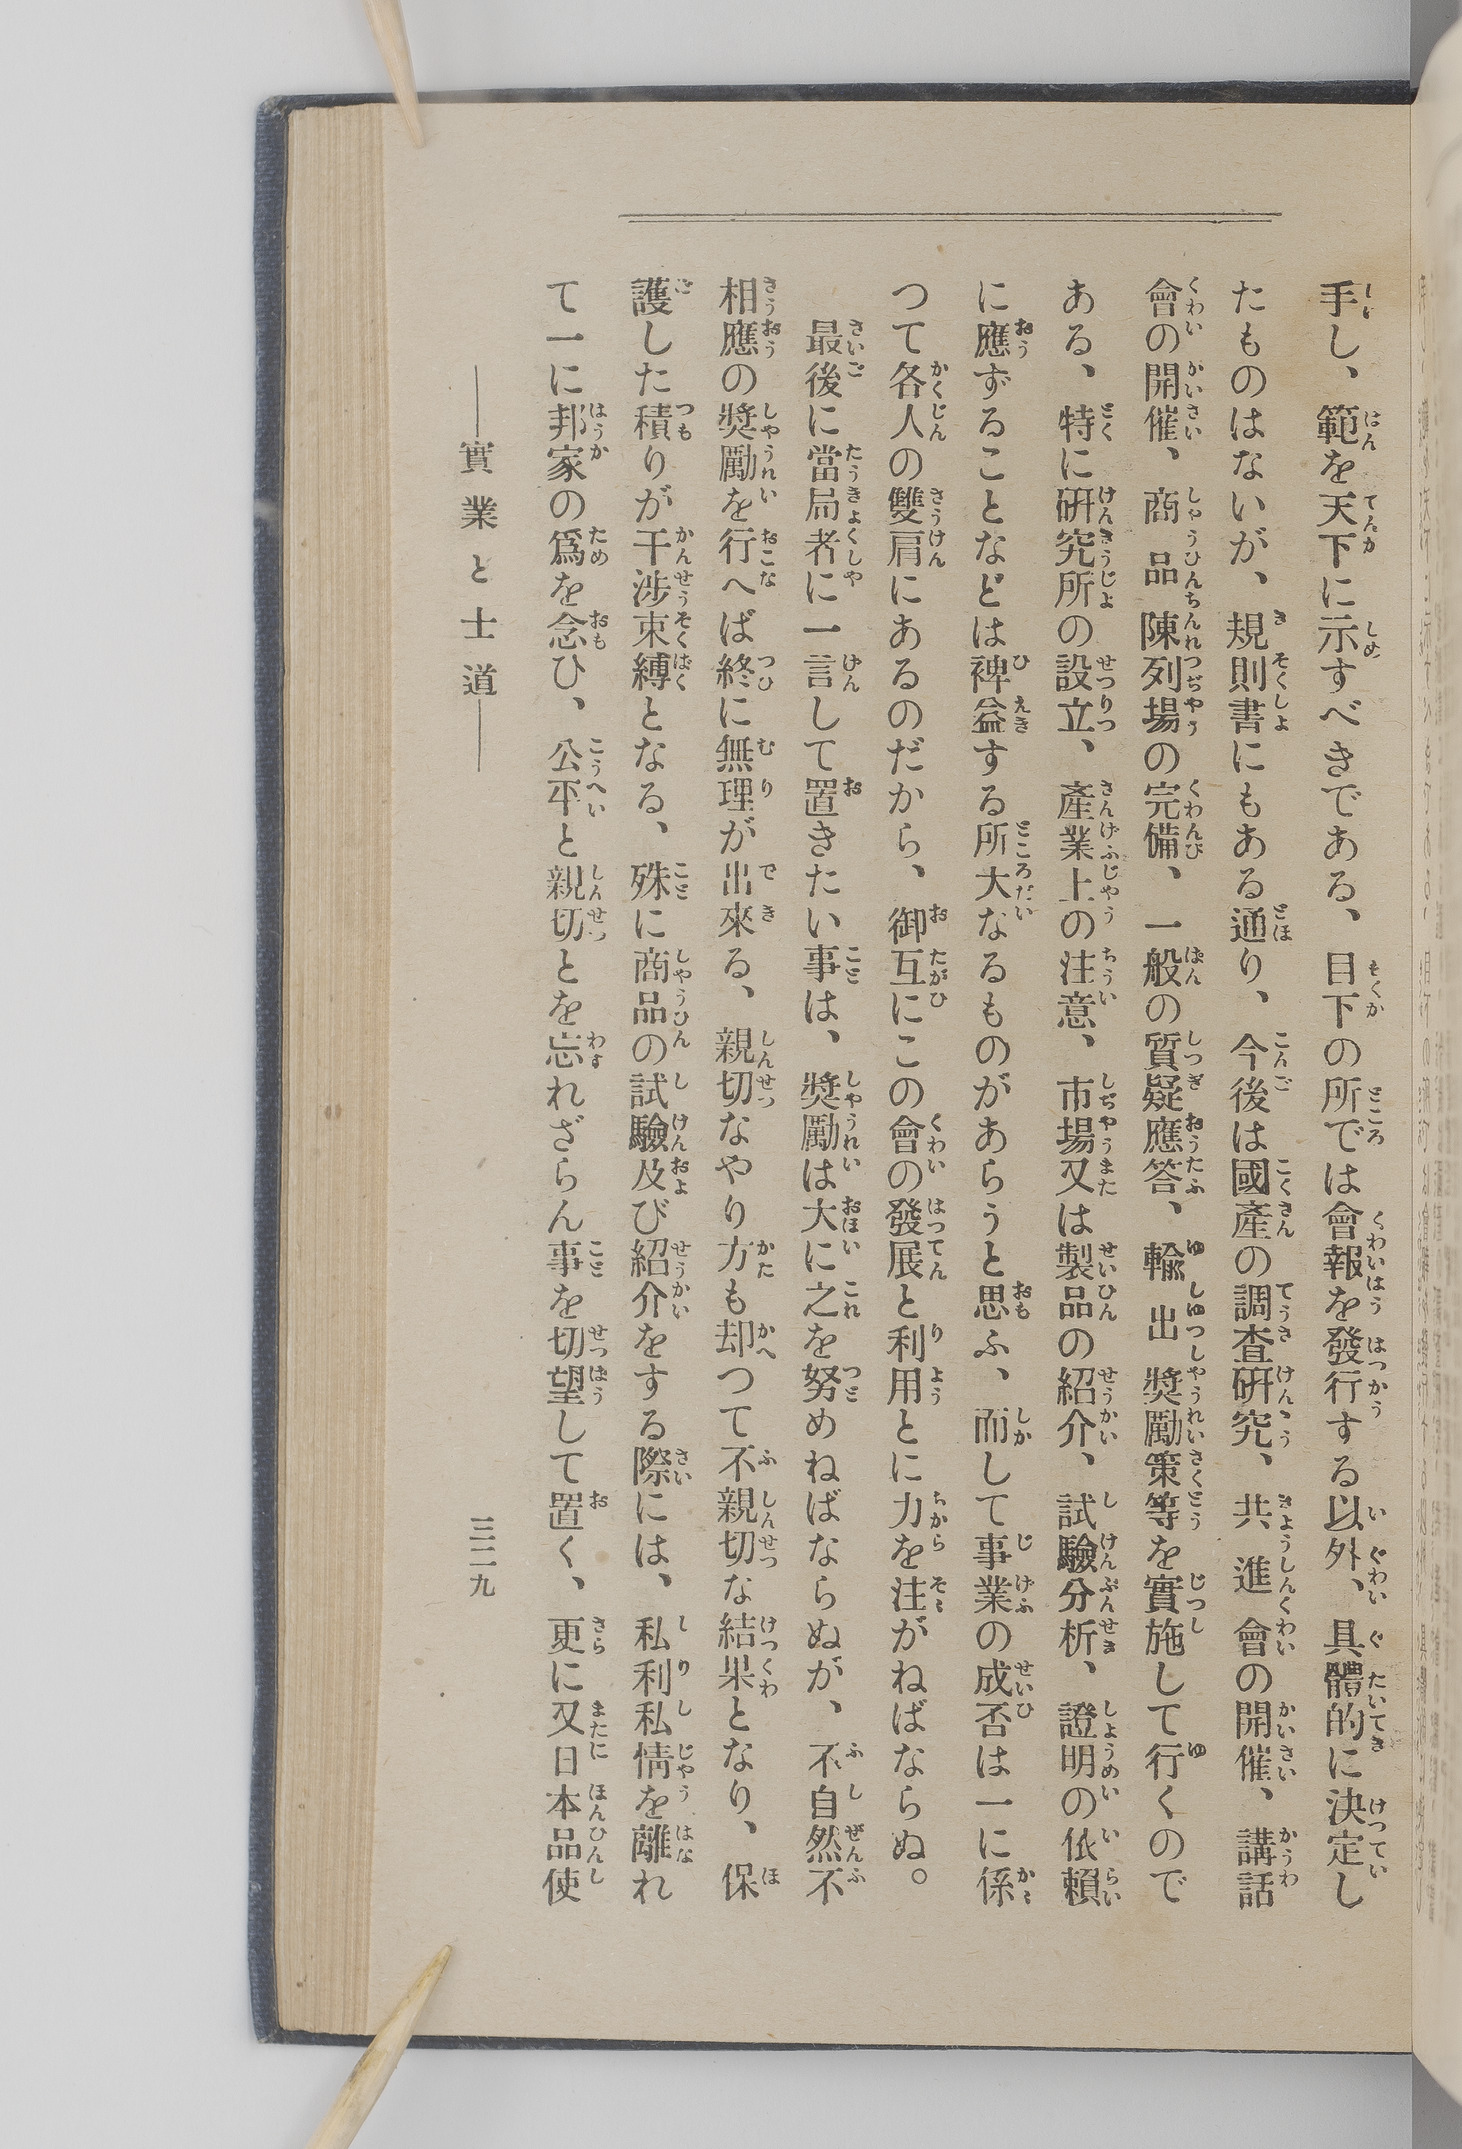 手し、範を天下に示すべきである、目下の所では會報を發行する以外、具體的に決定し
たものはないが、規則書にもある通り、今後は國產の調査硏究、共進會の開催、講話
會の開催、商品陳列場の完備、一般の質疑應答、輸出奬勵策等を實施して行くので
ある、特に硏究所の設立、產業上の注意、市場又は製品の紹介、試驗分析、證明の依賴
に應ずることなどは裨益する所大なるものがあらうと思ふ、而して事業の成否は一に係
つて各人の雙肩にあるのだから、御互にこの會の發展と利用とに力を注がねばならぬ。
最後に當局者に一言して置きたい事は、奬勵は大に之を努めねばならぬが、不自然不
相應の奬勵を行へば終に無理が出來る、親切なやり方も却つて不親切な結果となり、保
護した積りが干涉束縛となる、殊に商品の試驗及び紹介をする際には、私利私情を離れ
て一に邦家の爲を念ひ、公平と親切とを忘れざらん事を切望して置く、更に又日本品使
――實業と士道――
三二九